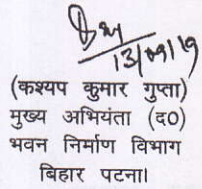 13/09/19
(कश्यप कुमार गुप्ता)
मुख्य अभियंता (द0)
भवन निर्माण विभाग
बिहार पटना।